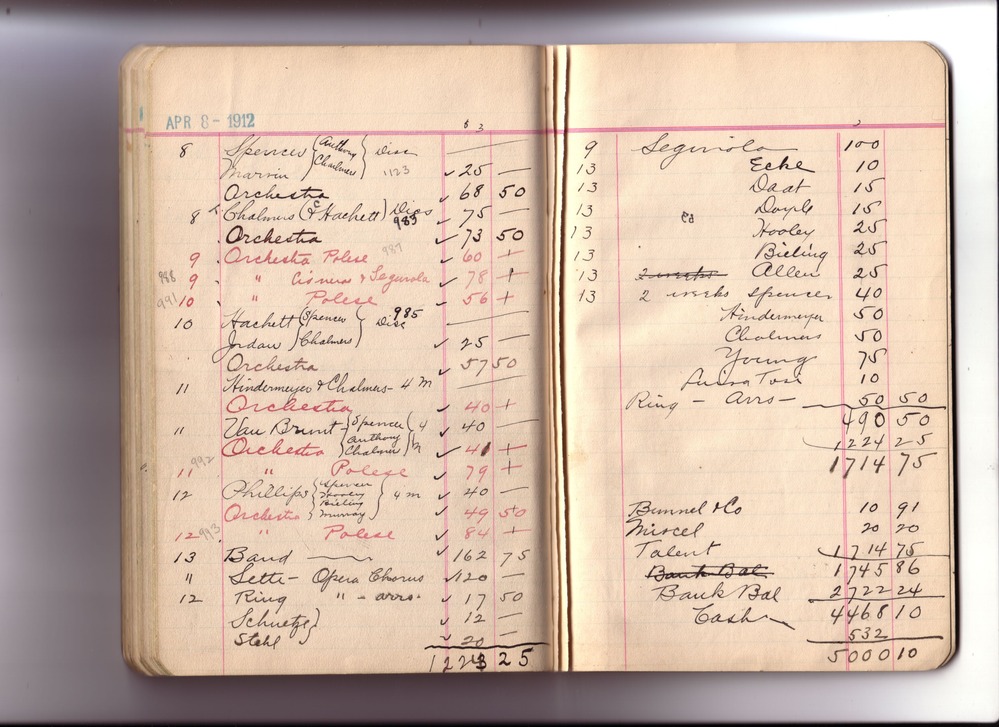 APR 8 - 1912
$ 3
8 Spencer { Anthony } Disc
Marvin { Chalmers } 1123 ✓ 25 —
Orchestra ✓ 68 50
8 Chalmers (& Hackett) Discs ✓ 75 —
983
Orchestra ✓ 73 50
9 Orchestra Polese 987 ✓ 60 +
988 9 " Cisneros & Segurola ✓ 78 +
991 10 " Polese ✓ 56 +
10 Hackett { Spencer } Disc 985
Jordan { Chalmers } ✓ 25 —
Orchestra ✓ 57 50
11 Hindermeyer & Chalmers - 4 M
Orchestra ✓ 40 +
" Van Brunt { Spencer Anthony Chalmers } 4 M ✓ 40 —
Orchestra ✓ 41 +
11 992 " Polese ✓ 79 +
12 Phillips { Spencer Hooley Bieling Murray } 4 M ✓ 40 —
Orchestra ✓ 49 50
12 993 " Polese ✓ 84 +
13 Band ✓ 162 75
" Setti - Opera Chorus ✓ 120 —
12 Ring " - arrs. ✓ 17 50
Schuetze } ✓ 12 —
Stehl } ✓ 20 —
25
9 Segurola 100
13 Ecke 10
13 Daat 15
13 Pd Doyle 15
13 Hooley 25
13 Bieling 25
13 2 weeks Allen 25
13 2 weeks Spencer 40
Hindermeyer 50
Chalmers 50
Young 75
Luisa Tosi 10
Ring - Arrs - 50 50
490 50
1224 25
1714 75
Bunnel & Co 10 91
Miscel 20 20
Talent 1714 75
Bank Bal. 1745 86
Bank Bal 2722 24
Cash 4468 10
532
5000 10